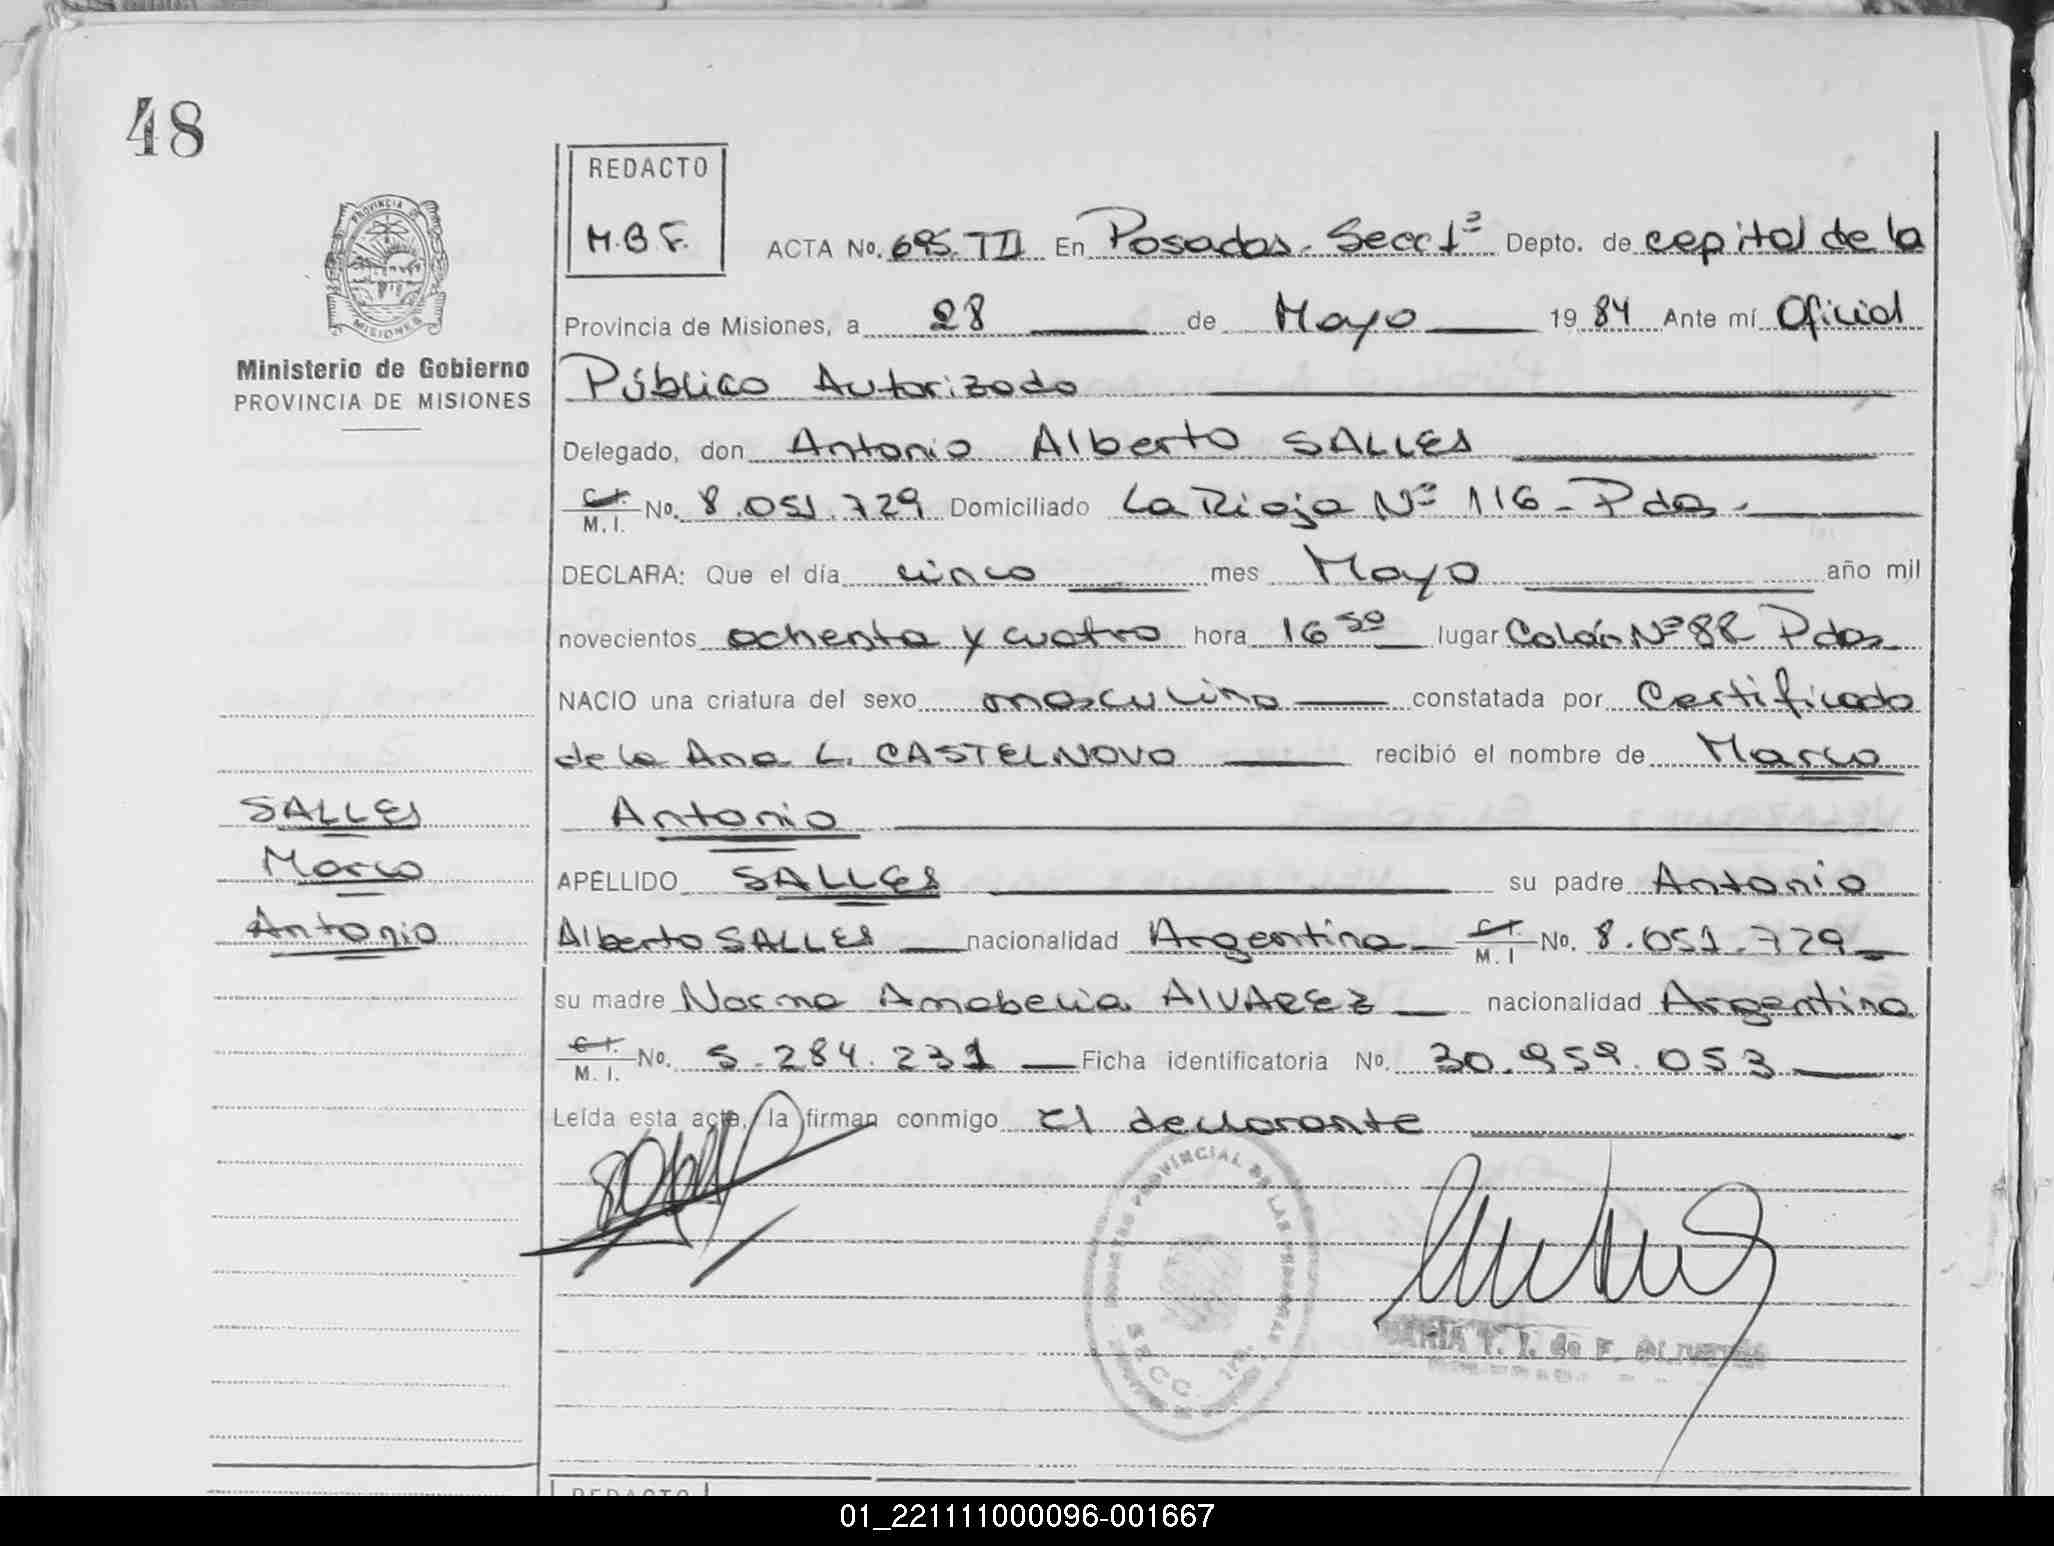 48
REDACTO
M.B.F.
PROVINCIA DE
MISIONES
Ministerio de Gobierno
PROVINCIA DE MISIONES
ACTA No. 695. TII En Posadas. Secc 1ª Depto. de capital de la
Provincia de Misiones, a 28 de Mayo 19 84 Ante mí Oficial
Público Autorizado
Delegado, don Antonio Alberto SALLES
C.I. M.I. No. 8.051.729 Domiciliado La Rioja Nº 116 - Pdas.
DECLARA: Que el día cinco mes Mayo año mil
novecientos ochenta y cuatro hora 16 50 lugar Colón Nº 82 Pdas
NACIO una criatura del sexo masculino constatada por Certificado
de la Ana L. CASTELNOVO recibió el nombre de Marco
Antonio
SALLES
Marco
Antonio
APELLIDO SALLES su padre Antonio
Alberto SALLES nacionalidad Argentina C.I. M.I No. 8.051.729
su madre Norma Amabelia ALVAREZ nacionalidad Argentina
C.I. M.I. No. 5.284.231 Ficha identificatoria No. 30.959.053
Leída esta acta, la firman conmigo El declarante
REGISTRO PROVINCIAL DE LAS PERSONAS
SECC. 1ra.
MARIA T. I. de F.
REDACTO
01_221111000096-001667